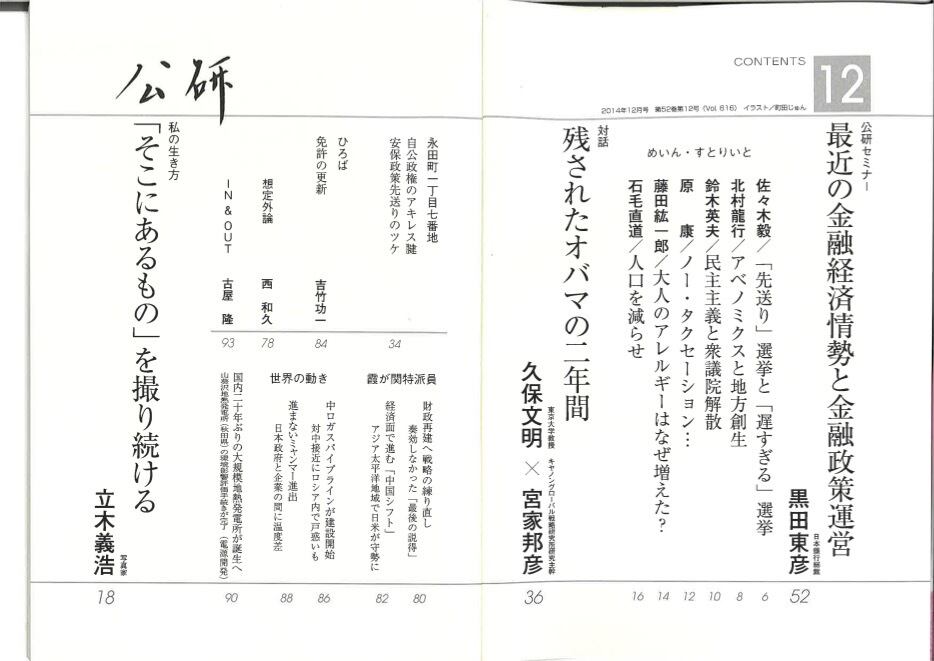 CONTENTS
12
2014年12月号 第52巻第12号（Vol. 616） イラスト／町田じゅん
公研セミナー
最近の金融経済情勢と金融政策運営
日本銀行総裁
黒田東彦
52
めいん・すとりいと
佐々木毅／「先送り」選挙と「遅すぎる」選挙
6
北村龍行／アベノミクスと地方創生
8
鈴木英夫／民主主義と衆議院解散
10
原 康／ノー・タクセーション…
12
藤田紘一郎／大人のアレルギーはなぜ増えた？
14
石毛直道／人口を減らせ
16
対話
残されたオバマの二年間
東京大学教授
久保文明
×
キヤノングローバル戦略研究所研究主幹
宮家邦彦
36
公研
永田町一丁目七番地
自公政権のアキレス腱
安保政策先送りのツケ
34
ひろば
免許の更新
吉竹功一
84
想定外論
西 和久
78
IN&OUT
古屋 隆
93
霞が関特派員
財政再建へ戦略の練り直し
奏効しなかった「最後の説得」
80
経済面で進む「中国シフト」
アジア太平洋地域で日米が守勢に
82
世界の動き
中ロガスパイプラインが建設開始
対中接近にロシア内で戸惑いも
86
進まないミャンマー進出
日本政府と企業の間に温度差
88
国内二十年ぶりの大規模地熱発電所が誕生へ
山葵沢地熱発電所（秋田県）の環境影響評価手続きが完了（電源開発）
90
私の生き方
「そこにあるもの」を撮り続ける
写真家
立木義浩
18